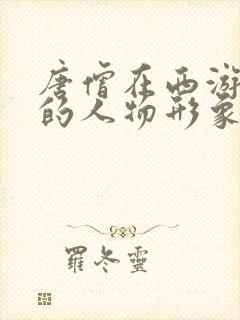 唐僧在西游
的人物形象
羅冬靈